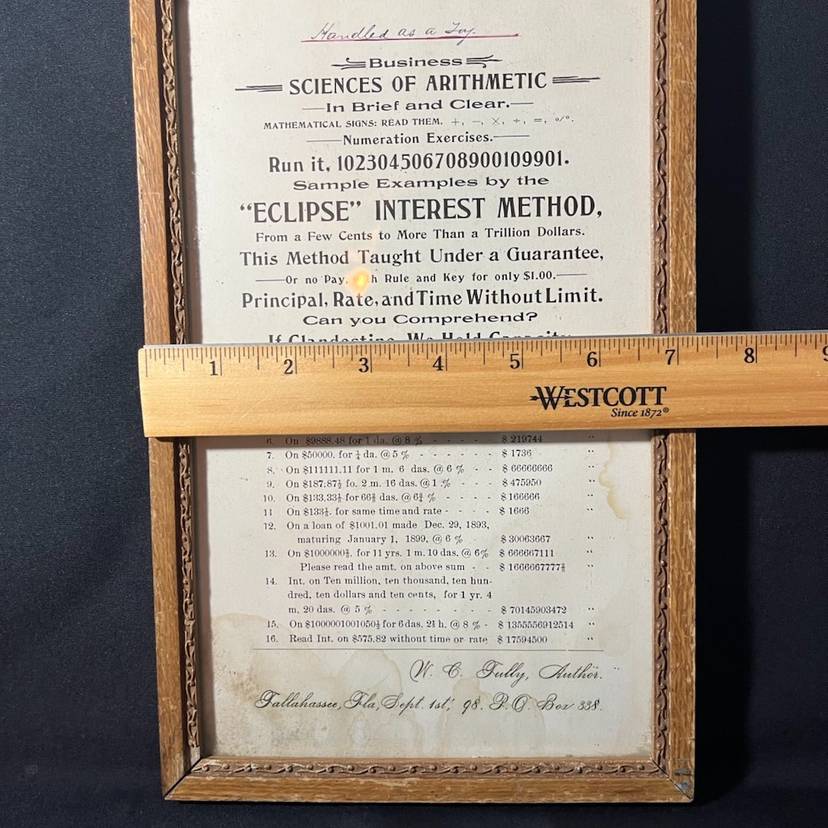 Handled as a Toy.
Business
SCIENCES OF ARITHMETIC
In Brief and Clear.
MATHEMATICAL SIGNS: READ THEM. +, −, ×, ÷, =, %.
Numeration Exercises.
Run it, 102304506708900109901.
Sample Examples by the
"ECLIPSE" INTEREST METHOD,
From a Few Cents to More Than a Trillion Dollars.
This Method Taught Under a Guarantee,
Or no Pay. Rule and Key for only $1.00.
Principal, Rate, and Time Without Limit.
Can you Comprehend?
If Clandestine, We Hold Capacity
1 2 3 4 5 6 7 8 9
WESTCOTT
Since 1872®
6. On $9888.48 for 1 da. @ 8 % - - - - - $ 219744 "
7. On $50000. for ¼ da. @ 5 % - - - - - $ 1736 "
8. On $111111.11 for 1 m. 6 das. @ 6 % - - $ 66666666 "
9. On $187.87½ fo. 2 m. 16 das. @ 1 % - - $ 475950 "
10. On $133.33⅓ for 66⅔ das. @ 6¾ % - - - $ 166666 "
11 On $133⅓. for same time and rate - - - - $ 1666 "
12. On a loan of $1001.01 made Dec. 29, 1893,
maturing January 1, 1899, @ 6 % $ 30063667 "
13. On $1000000⅔. for 11 yrs. 1 m. 10 das. @ 6% $ 666667111 "
Please read the amt. on above sum - - $ 1666667777⅔ "
14. Int. on Ten million, ten thousand, ten hun-
dred, ten dollars and ten cents, for 1 yr. 4
m. 20 das. @ 5 % - - - - - - - - $ 70145903472 "
15. On $1000001001050½ for 6 das. 2½ h. @ 8 % - $ 1355556912514 "
16. Read Int. on $575.82 without time or rate $ 17594500 "
W. C. Tully, Author.
Tallahassee, Fla, Sept. 1st, '98. P.O. Box 338.